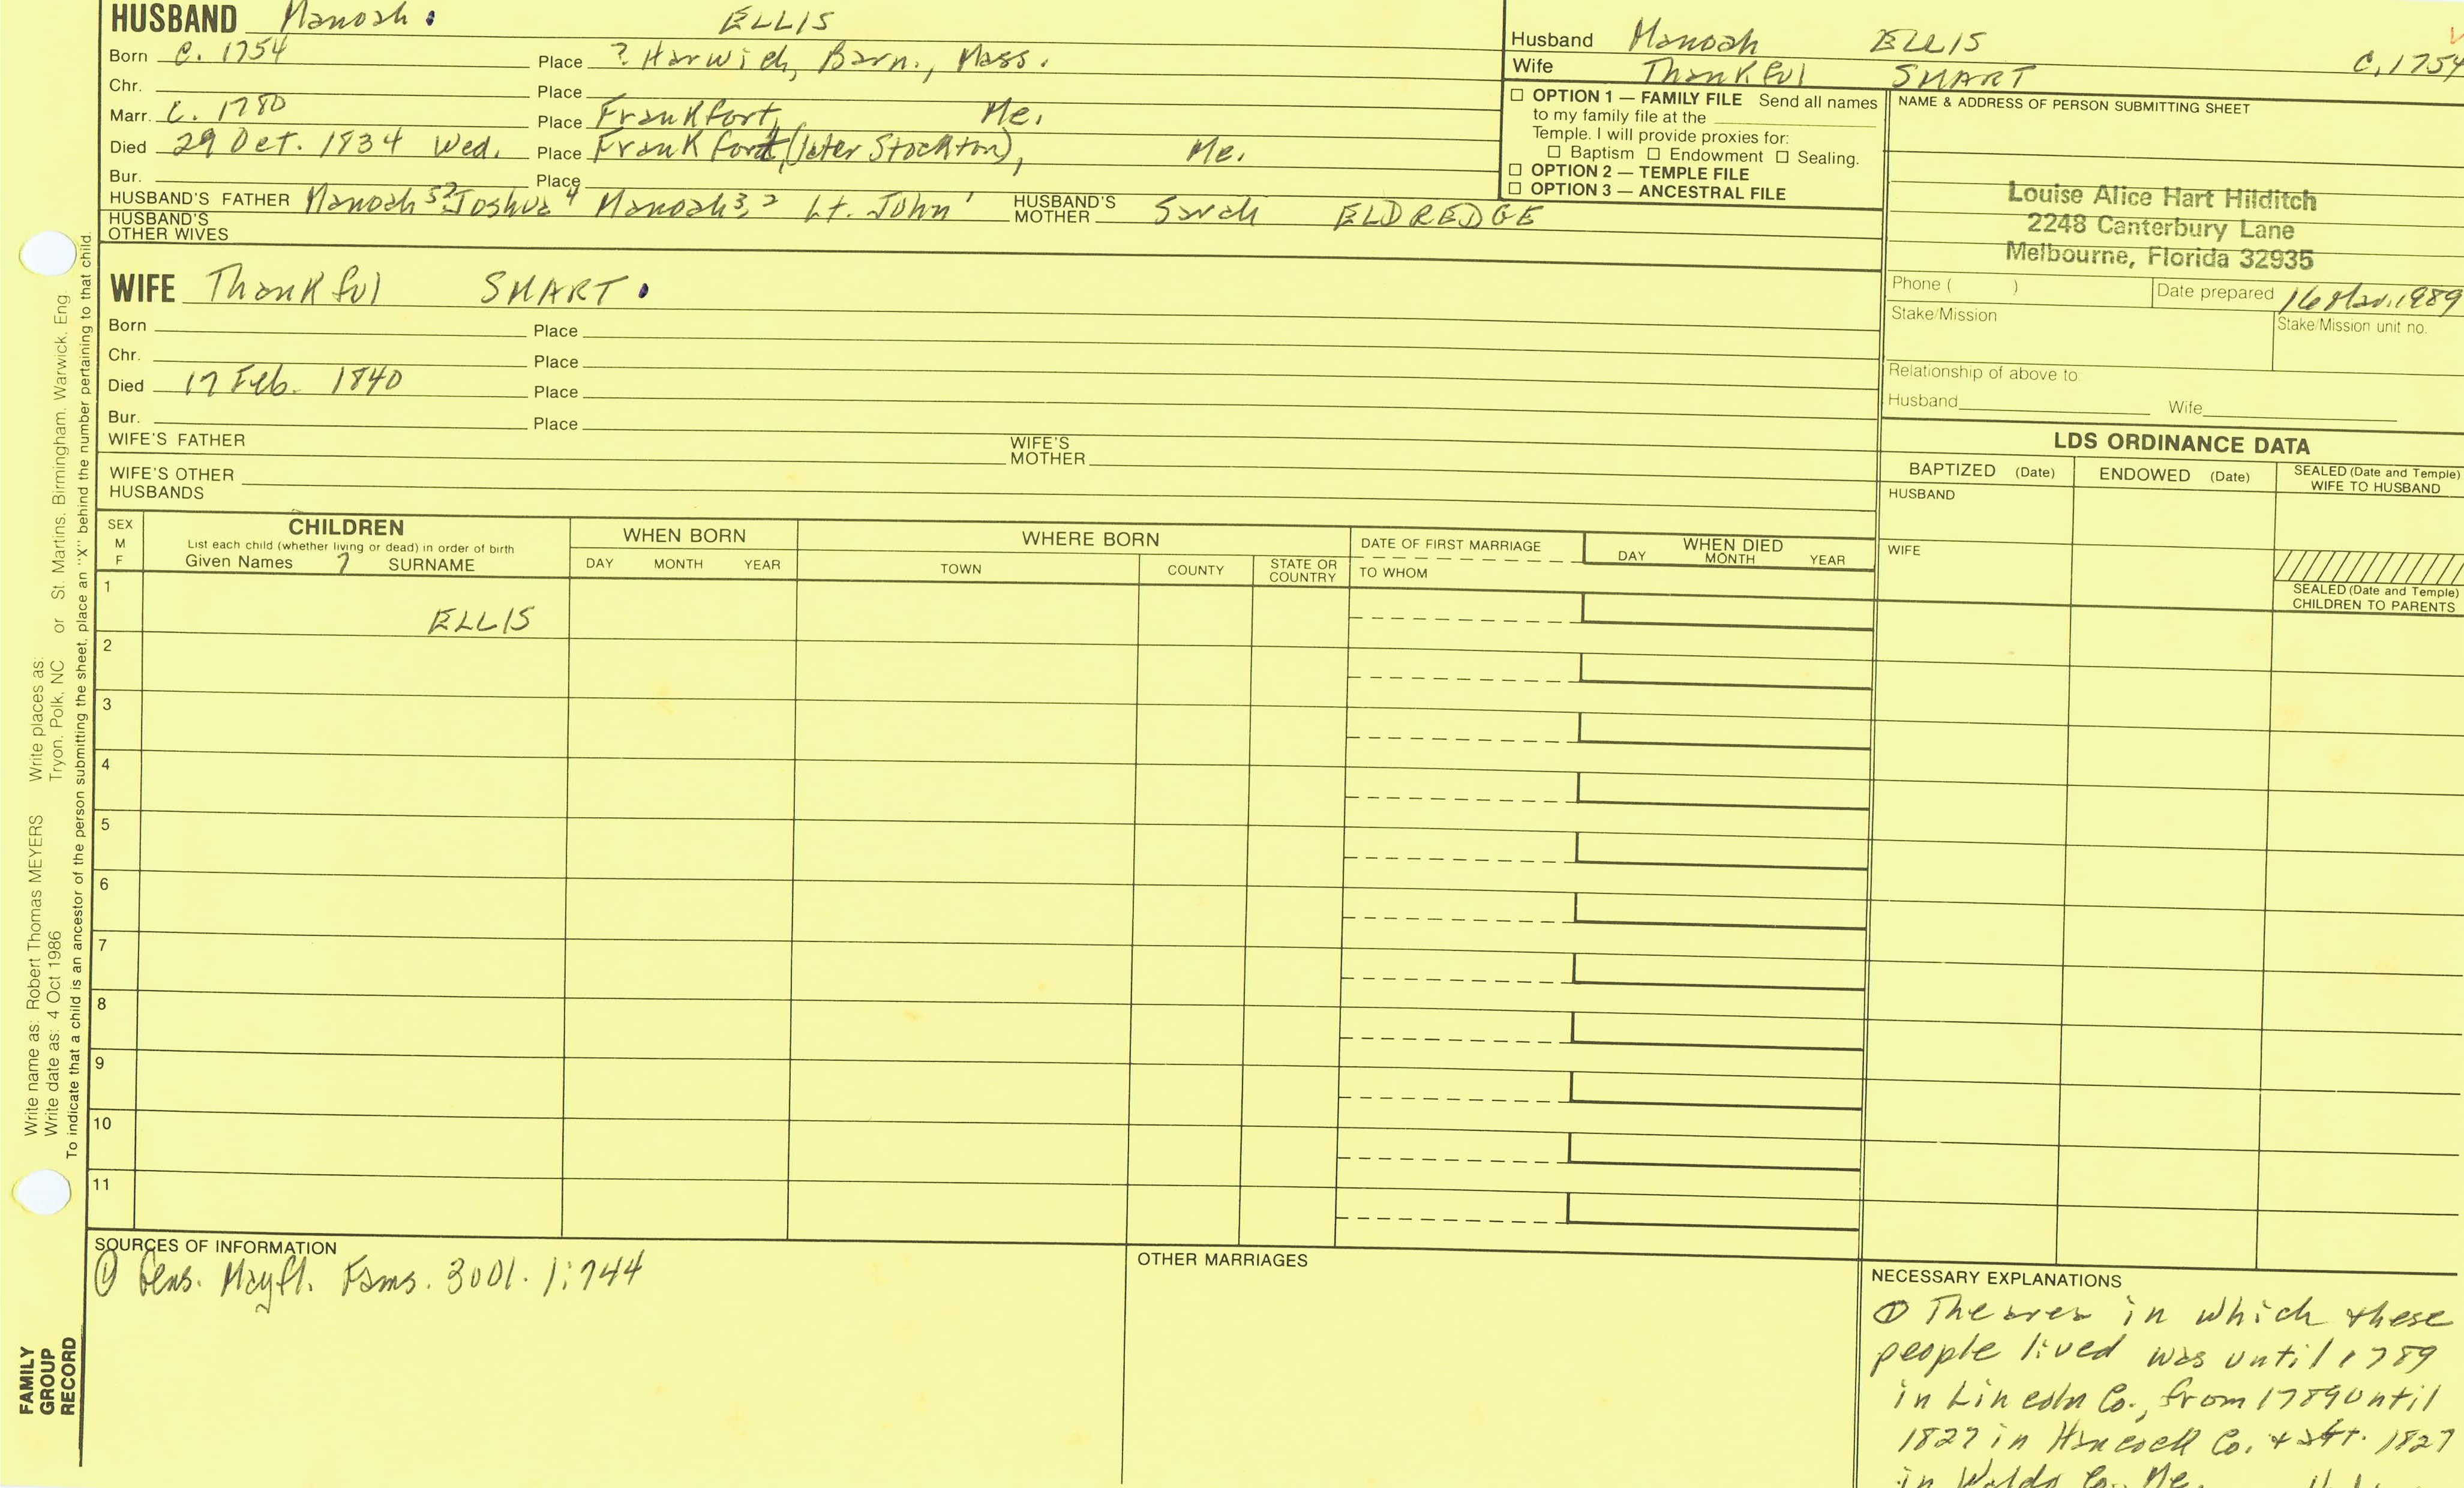 HUSBAND Manoah ELLIS
Born c. 1754 Place ? Harwich, Barn., Mass.
Chr. Place
Marr. c. 1780 Place Frankfort, Me.
Died 29 Oct. 1834 Wed. Place Frankfort (later Stockton), Me.
Bur. Place
HUSBAND'S FATHER Manoah 5? Joshua 4 Manoah 3, 2 Lt. John 1 HUSBAND'S MOTHER Sarah ELDREDGE
HUSBAND'S OTHER WIVES
WIFE Thankful SMART
Born Place
Chr. Place
Died 17 Feb. 1840 Place
Bur. Place
WIFE'S FATHER WIFE'S MOTHER
WIFE'S OTHER HUSBANDS
Husband Manoah ELLIS c. 1754
Wife Thankful SMART
☐ OPTION 1 — FAMILY FILE Send all names
to my family file at the
Temple. I will provide proxies for:
☐ Baptism ☐ Endowment ☐ Sealing.
☐ OPTION 2 — TEMPLE FILE
☐ OPTION 3 — ANCESTRAL FILE
NAME & ADDRESS OF PERSON SUBMITTING SHEET
Louise Alice Hart Hilditch
2248 Canterbury Lane
Melbourne, Florida 32935
Phone ( ) Date prepared 16 Mar. 1989
Stake/Mission Stake/Mission unit no.
Relationship of above to
Husband Wife
LDS ORDINANCE DATA
BAPTIZED (Date) ENDOWED (Date) SEALED (Date and Temple) WIFE TO HUSBAND
HUSBAND
WIFE
SEALED (Date and Temple)
CHILDREN TO PARENTS
SEX M F
CHILDREN
List each child (whether living or dead) in order of birth
Given Names ? SURNAME
WHEN BORN
DAY MONTH YEAR
WHERE BORN
TOWN COUNTY STATE OR COUNTRY
DATE OF FIRST MARRIAGE
TO WHOM
WHEN DIED
DAY MONTH YEAR
1 ELLIS
2
3
4
5
6
7
8
9
10
11
SOURCES OF INFORMATION
① Gens. Mayfl. Fams. 3001. 1:744
OTHER MARRIAGES
NECESSARY EXPLANATIONS
① The area in which these
people lived was until 1789
in Lincoln Co., from 1789 until
1827 in Hancock Co. + aft. 1827
in Waldo Co., Me.
Write name as: Robert Thomas MEYERS Write places as: or St. Martins, Birmingham, Warwick, Eng.
Write date as: 4 Oct 1986 Tryon, Polk, NC
To indicate that a child is an ancestor of the person submitting the sheet, place an "X" behind the number pertaining to that child.
FAMILY
GROUP
RECORD